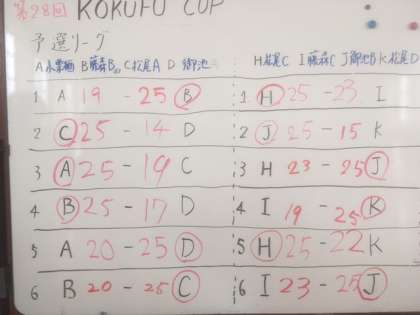 第28回 KOKUFU CUP
予選リーグ
A小栗栖 B藤森B C松尾A D御池
H松尾C I藤森C J御池B K松尾D
1 A 19 - 25 B
1 H 25 - 23 I
2 C 25 - 14 D
2 J 25 - 15 K
3 A 25 - 19 C
3 H 23 - 25 J
4 B 25 - 17 D
4 I 19 - 25 K
5 A 20 - 25 D
5 H 25 - 22 K
6 B 20 - 25 C
6 I 23 - 25 J